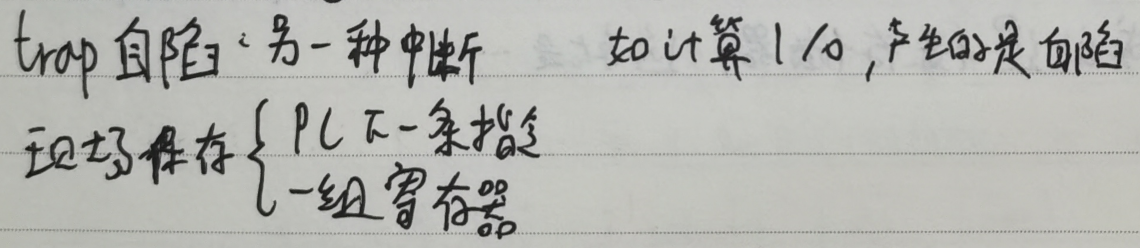 trap 自陷：另一种中断 如计算1/0，产生的是自陷
现场保存{PC 下一条指令
一组寄存器